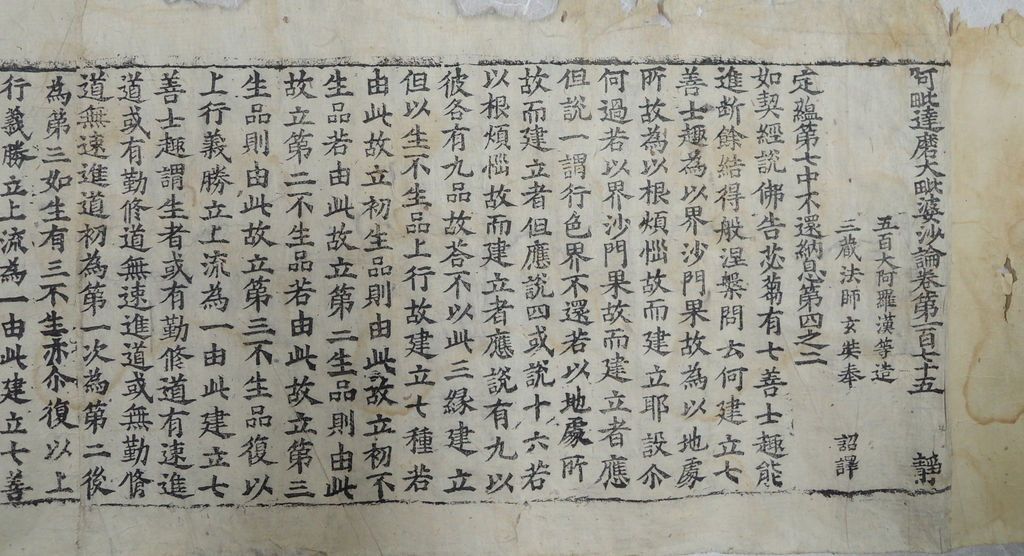 阿毗達磨大毗婆沙論卷第一百七十五
五百大阿羅漢等造
三藏法師玄奘奉 詔譯
定蘊第七中不還納息第四之二
如契經說佛告苾蒭有七善士趣能
進斷餘結得般涅槃問云何建立七
善士趣為以界沙門果故為以地處
所故為以根煩惱故而建立耶設尒
何過若以界沙門果故而建立者應
但說一謂行色界不還若以地處所
故而建立者但應說四或說十六若
以根煩惱故而建立者應說有九以
彼各有九品故荅不以此三緣建立
但以生不生品上行故建立七種若
由此故立初生品則由此故立初不
生品若由此故立第二生品則由此
故立第二不生品若由此故立第三
生品則由此故立第三不生品復以
上行義勝立上流為一由此建立七
善士趣謂生者或有勤修道有速進
道或有勤修道無速進道或無勤修
道無速進道初為第一次為第二後
為第三如生有三不生亦尒復以上
行義勝立上流為一由此建立七善